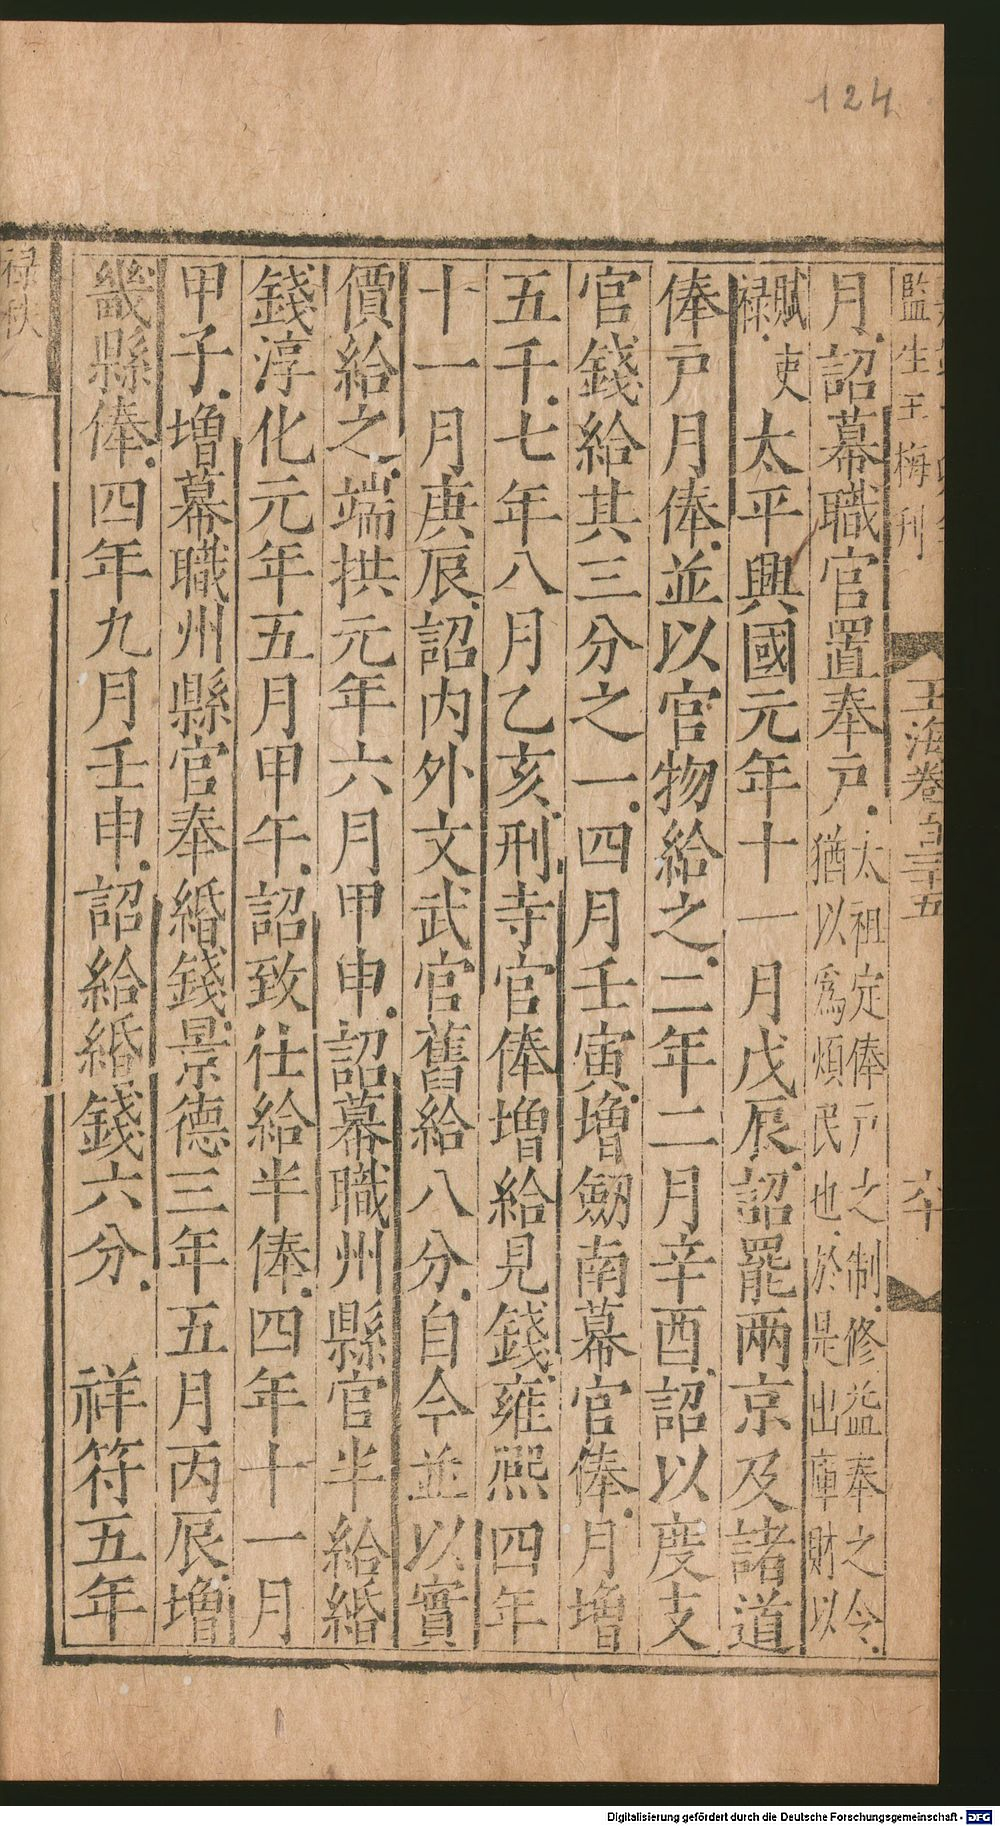 124
監生王梅刊
玉海卷百三十五
六十
月詔幕職官置奉戸太祖定俸戸之制修益奉之令
猶以爲煩民也於是出庫財以
賦吏
禄
太平興國元年十一月戊辰詔罷兩京及諸道
俸戸月俸並以官物給之二年二月辛酉詔以度支
官錢給其三分之一四月壬寅增劒南幕官俸月增
五千七年八月乙亥刑寺官俸增給見錢雍熙四年
十一月庚辰詔内外文武官舊給八分自今並以實
價給之端拱元年六月甲申詔幕職州縣官半給緡
錢淳化元年五月甲午詔致仕給半俸四年十一月
甲子增幕職州縣官奉緡錢景德三年五月丙辰增
畿縣俸四年九月壬申詔給緡錢六分 祥符五年
禄秩
Digitalisierung gefördert durch die Deutsche Forschungsgemeinschaft - DFG